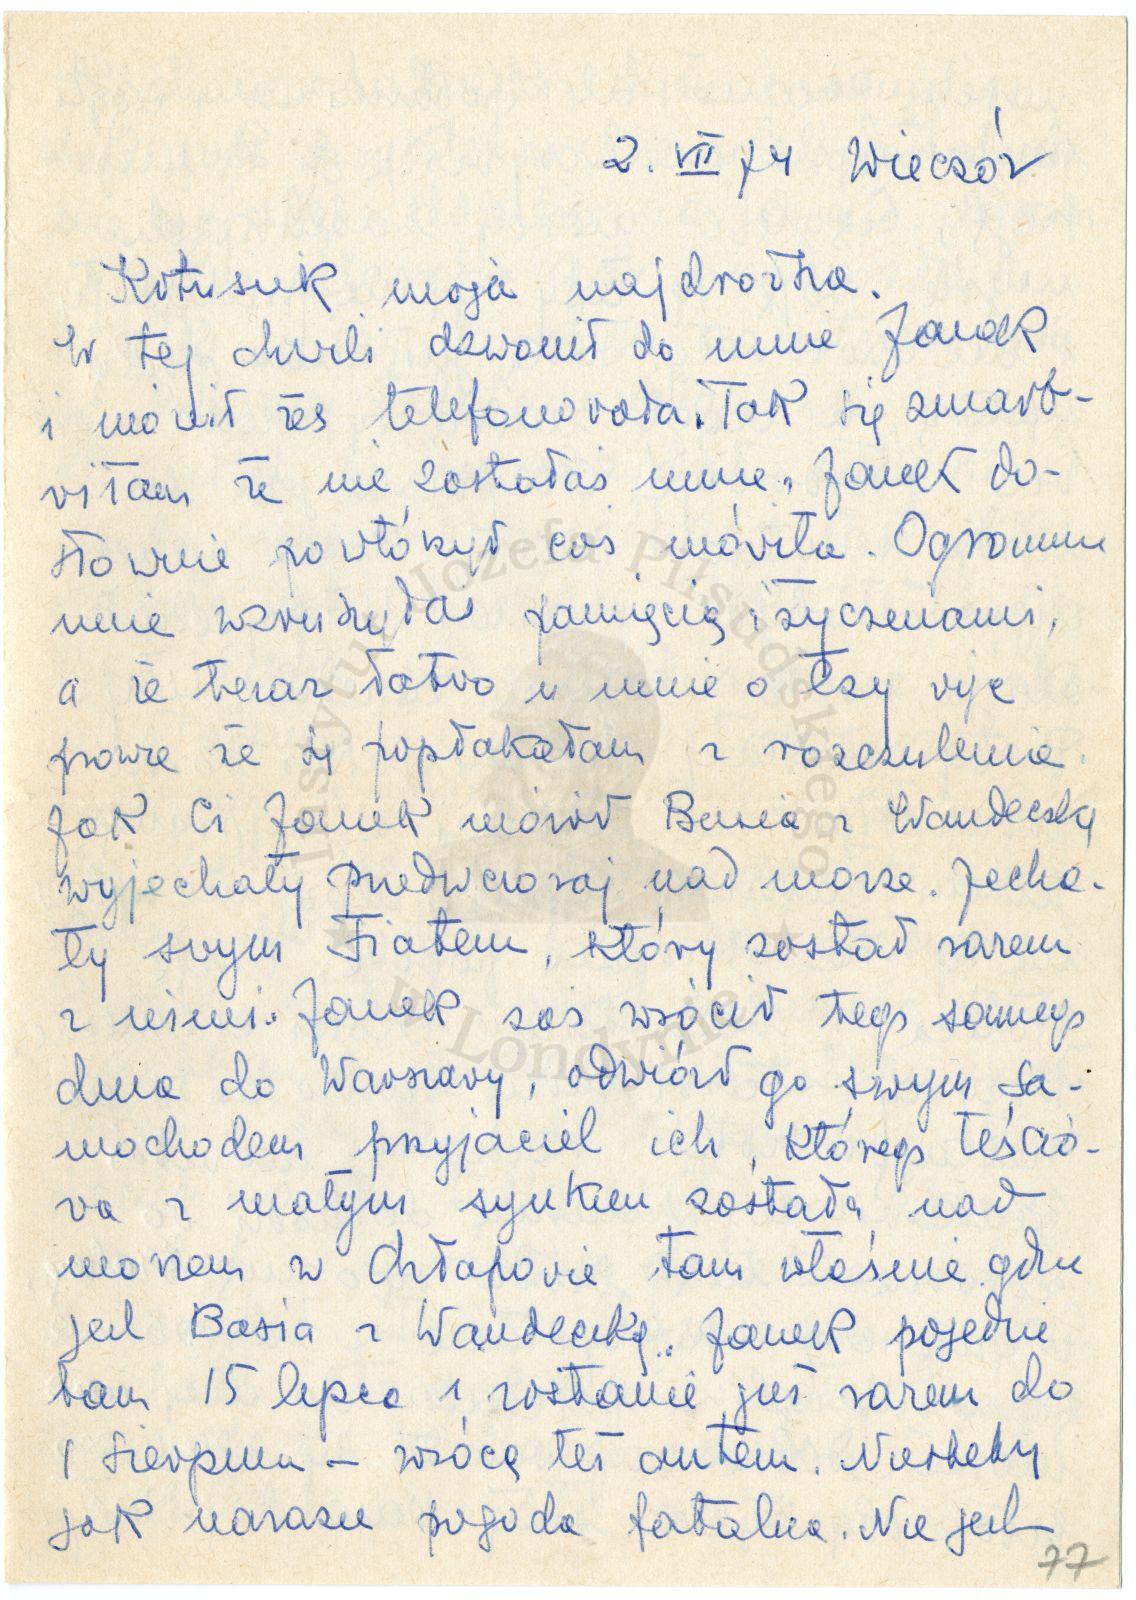 2. VII 74 Wieczór
Kotusiek moja najdroższa.
W tej chwili dzwonił do mnie Janek
i mówił żeś telefonowała. Tak się zmart-
wiłam że nie zostałaś mnie, Janek do-
słownie powtórzył coś mówiła. Ogromnie
mnie wzruszyłaś pamięcią i życzeniami,
a że teraz łatwo u mnie o łzy więc
powiem że się popłakałam z rozczulenia.
Jak Ci Janek mówił Basia z Wandeczką
wyjechały przedwczoraj nad morze. Jecha-
ły swym Fiatem, który został razem
z nimi. Janek zaś wrócił tego samego
dnia do Warszawy, odwiózł go swym sa-
mochodem przyjaciel ich, którego teścio-
wa z małym synkiem została nad
morzem w Chłapowie tam właśnie gdzie
jest Basia z Wandeczką. Janek pojedzie
tam 15 lipca i zostanie już razem do
1 sierpnia – wrócą też autem. Niestety
jak narazie pogoda fatalna. Nie jest
77
Instytut Józefa Piłsudskiego
w Londynie